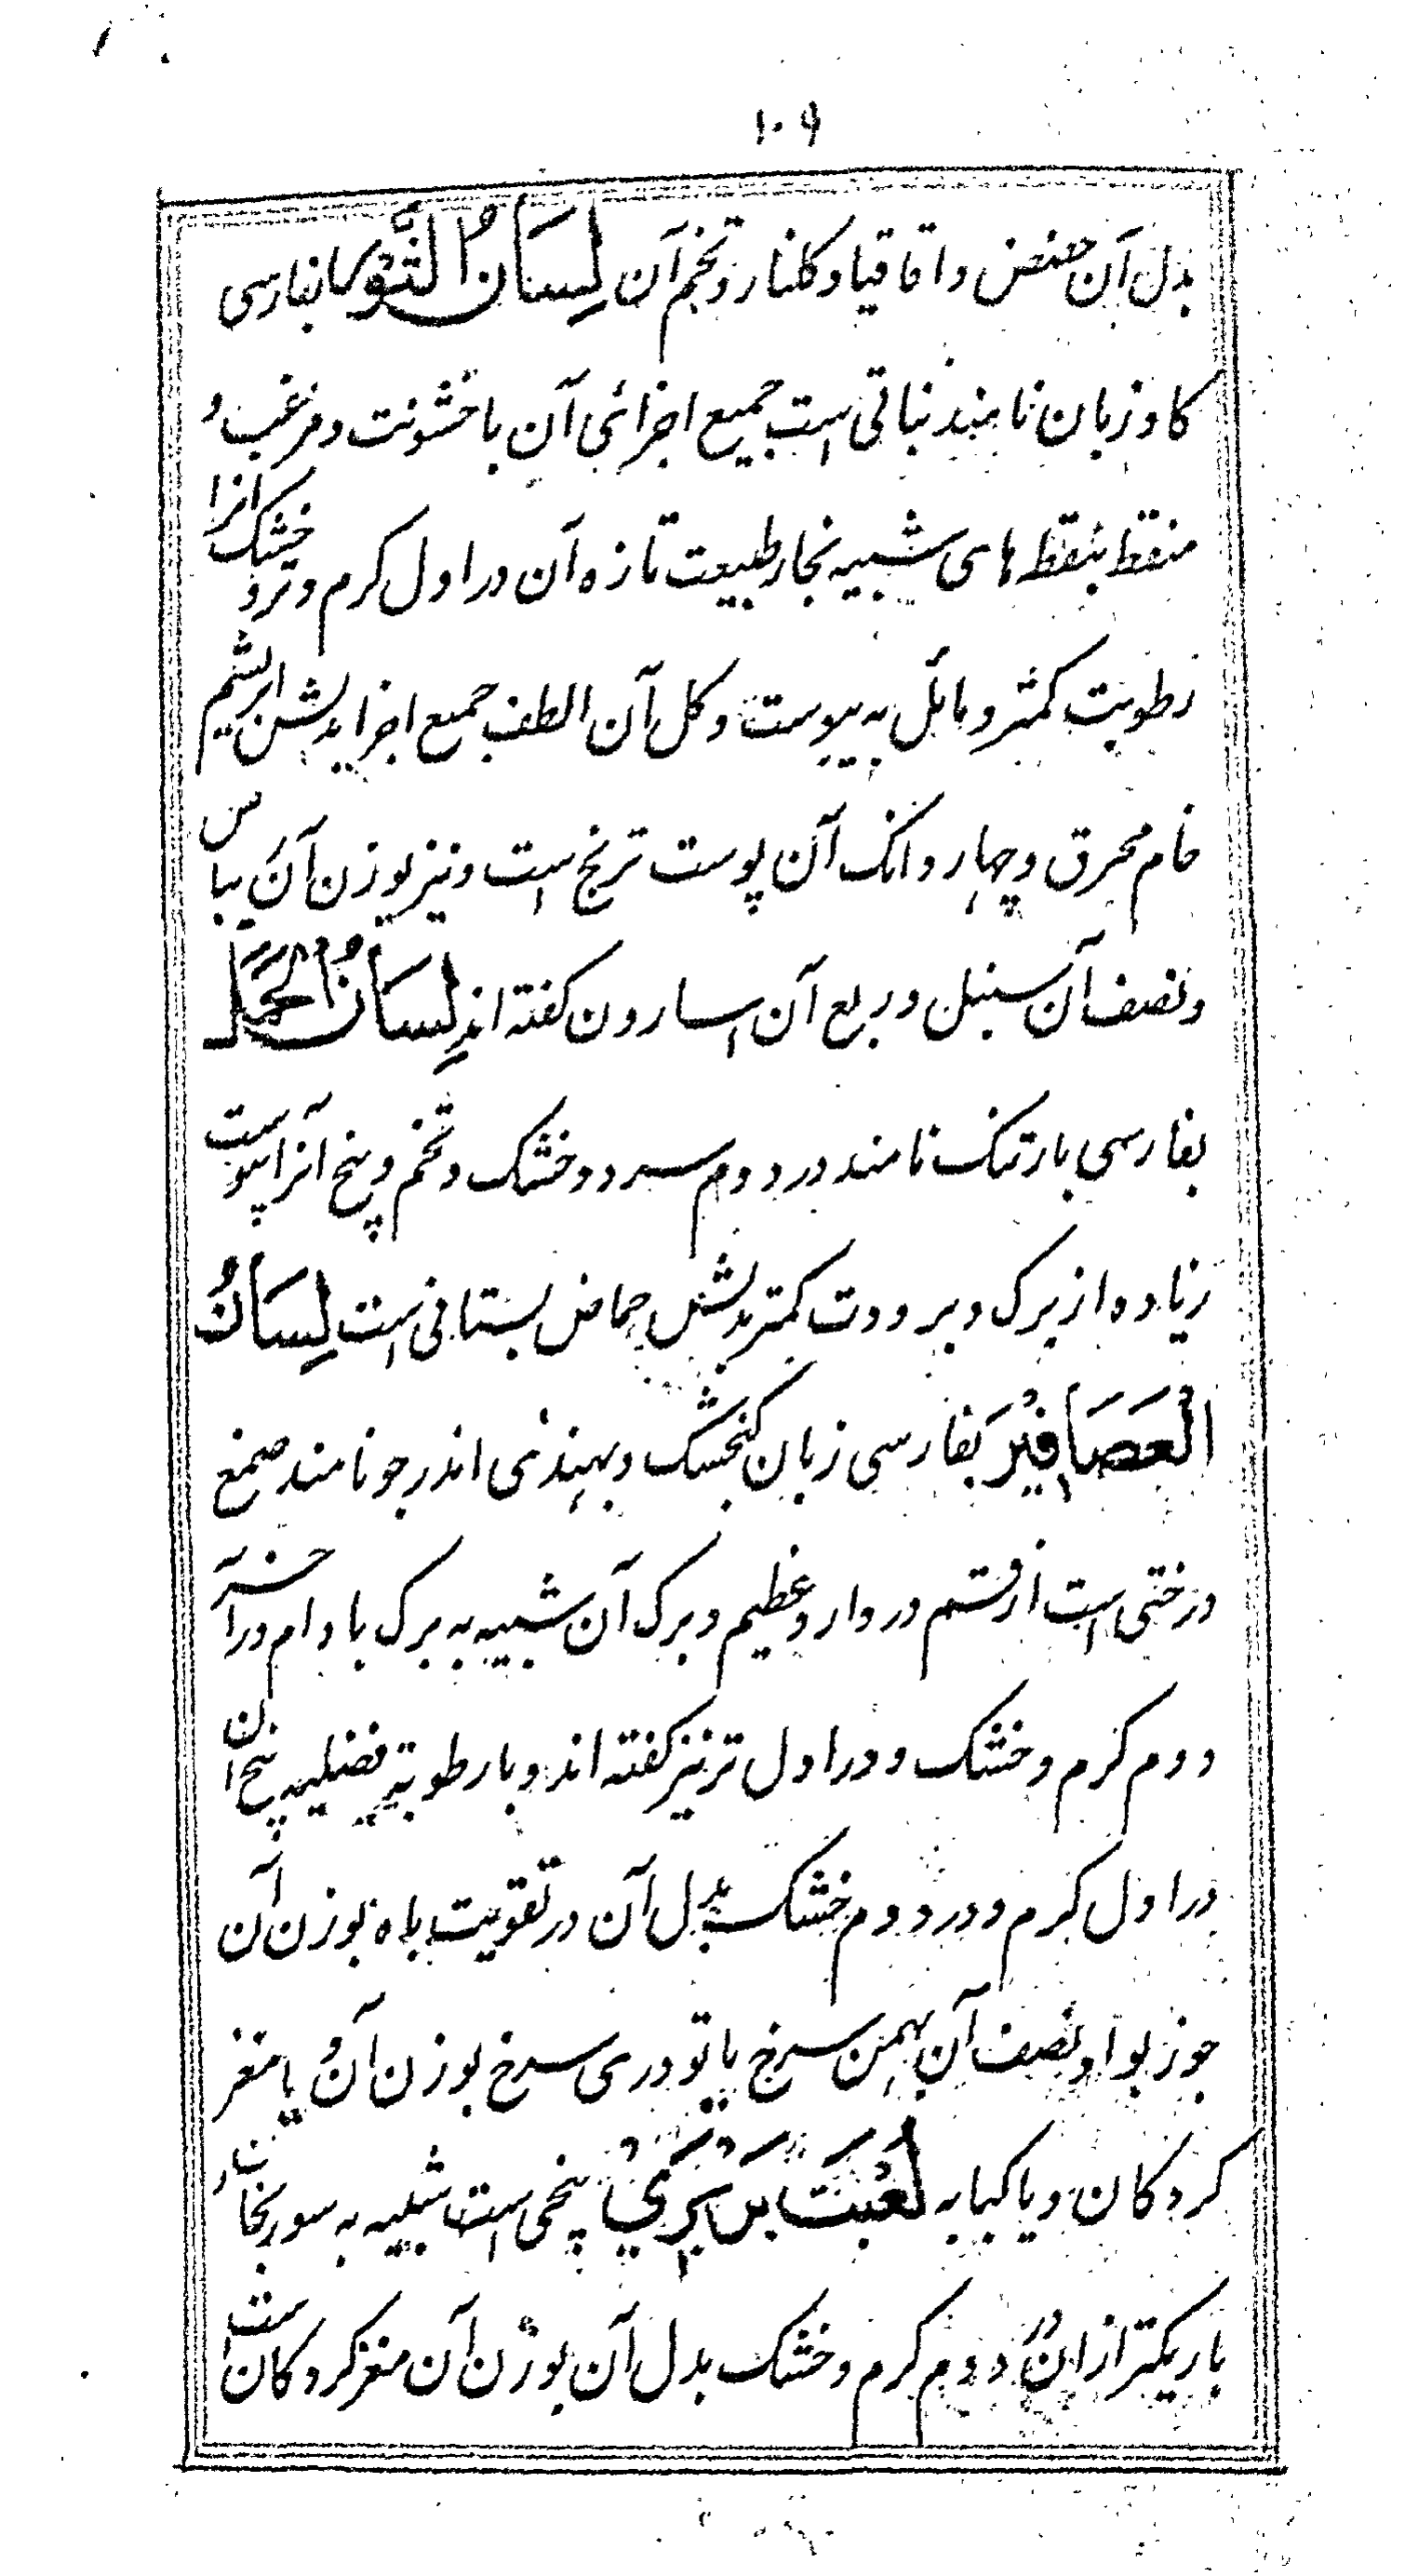 ۱۰۹
بدل آن حضض و اقاقیا و کلنار و تخم آن لِسَانُ الثَّوْر بفارسی
کاو زبان نامند نباتی است جمیع اجزائی آن با خشونت و مزغب و
منقط بنقطهای شبیه بخار طبیعت تازه آن در اول کرم و تر و خشک انرا
رطوبت کمتر و مائل به یبوست و کل آن الطف جمیع اجزا بدلش ابریشم
خام محرق و چهار دانک آن پوست ترنج است و نیز بوزن آن
ونصف آن سنبل و ربع آن اسارون کفته اند لِسَانُ الحَمَل
بفارسی بارتنک نامند در دوم سرد و خشک و تخم و بیخ آنرا یبوست
زیاده از برک و برودت کمتر بدلش حماض بستانی است لِسَانُ
الْعَصَافِیْرَ بفارسی زبان کنجشک و بهندی اندرجو نامند صمغ
درختی است از قسم دردار و عظیم و برک آن شبیه به برک بادام در آخر
دوم کرم و خشک و در اول تر نیز کفته اند و با رطوبة فضلیه بیخ ان
در اول کرم و در دوم خشک بدل آن در تقویت باه بوزن آن
جوز بوا و نصف آن بهمن سرخ یا تودری سرخ بوزن آن یا مغز
کردکان و یا کبابه لُعْبَتَ بَرْبَرِي بیخی است شبیه به سورنجان و
باریکتر ازان در دوم کرم و خشک بدل آن بوزن آن مغز کردکان است